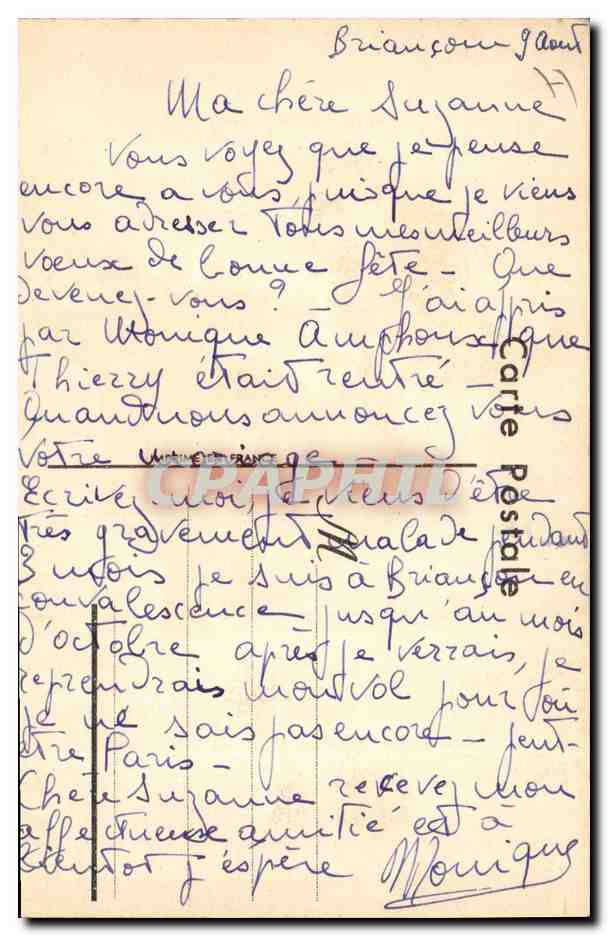 Briançon 9 Aout
Ma chère Suzanne
Vous voyez que je pense
encore a vous, puisque je viens
vous adresser tous mes meilleurs
vœux de bonne fête - Que
devenez-vous ? J'ai appris
par Monique Amphoux que
Thierry était rentré -
Quand nous annoncez vous
votre
IMPRIMÉ EN FRANCE
CPAPHIL
Ecrivez moi, je viens d'être
très gravement malade pendant
3 mois je suis à Briançon en
convalescence jusqu'au mois
d'octobre après je verrais, je
reprendrais mon vol pour où
je ne sais pas encore - peut-
être Paris -
Chère Suzanne recevez mon
affectueuse amitié et à
bientot j'espère Monique
Carte Postale